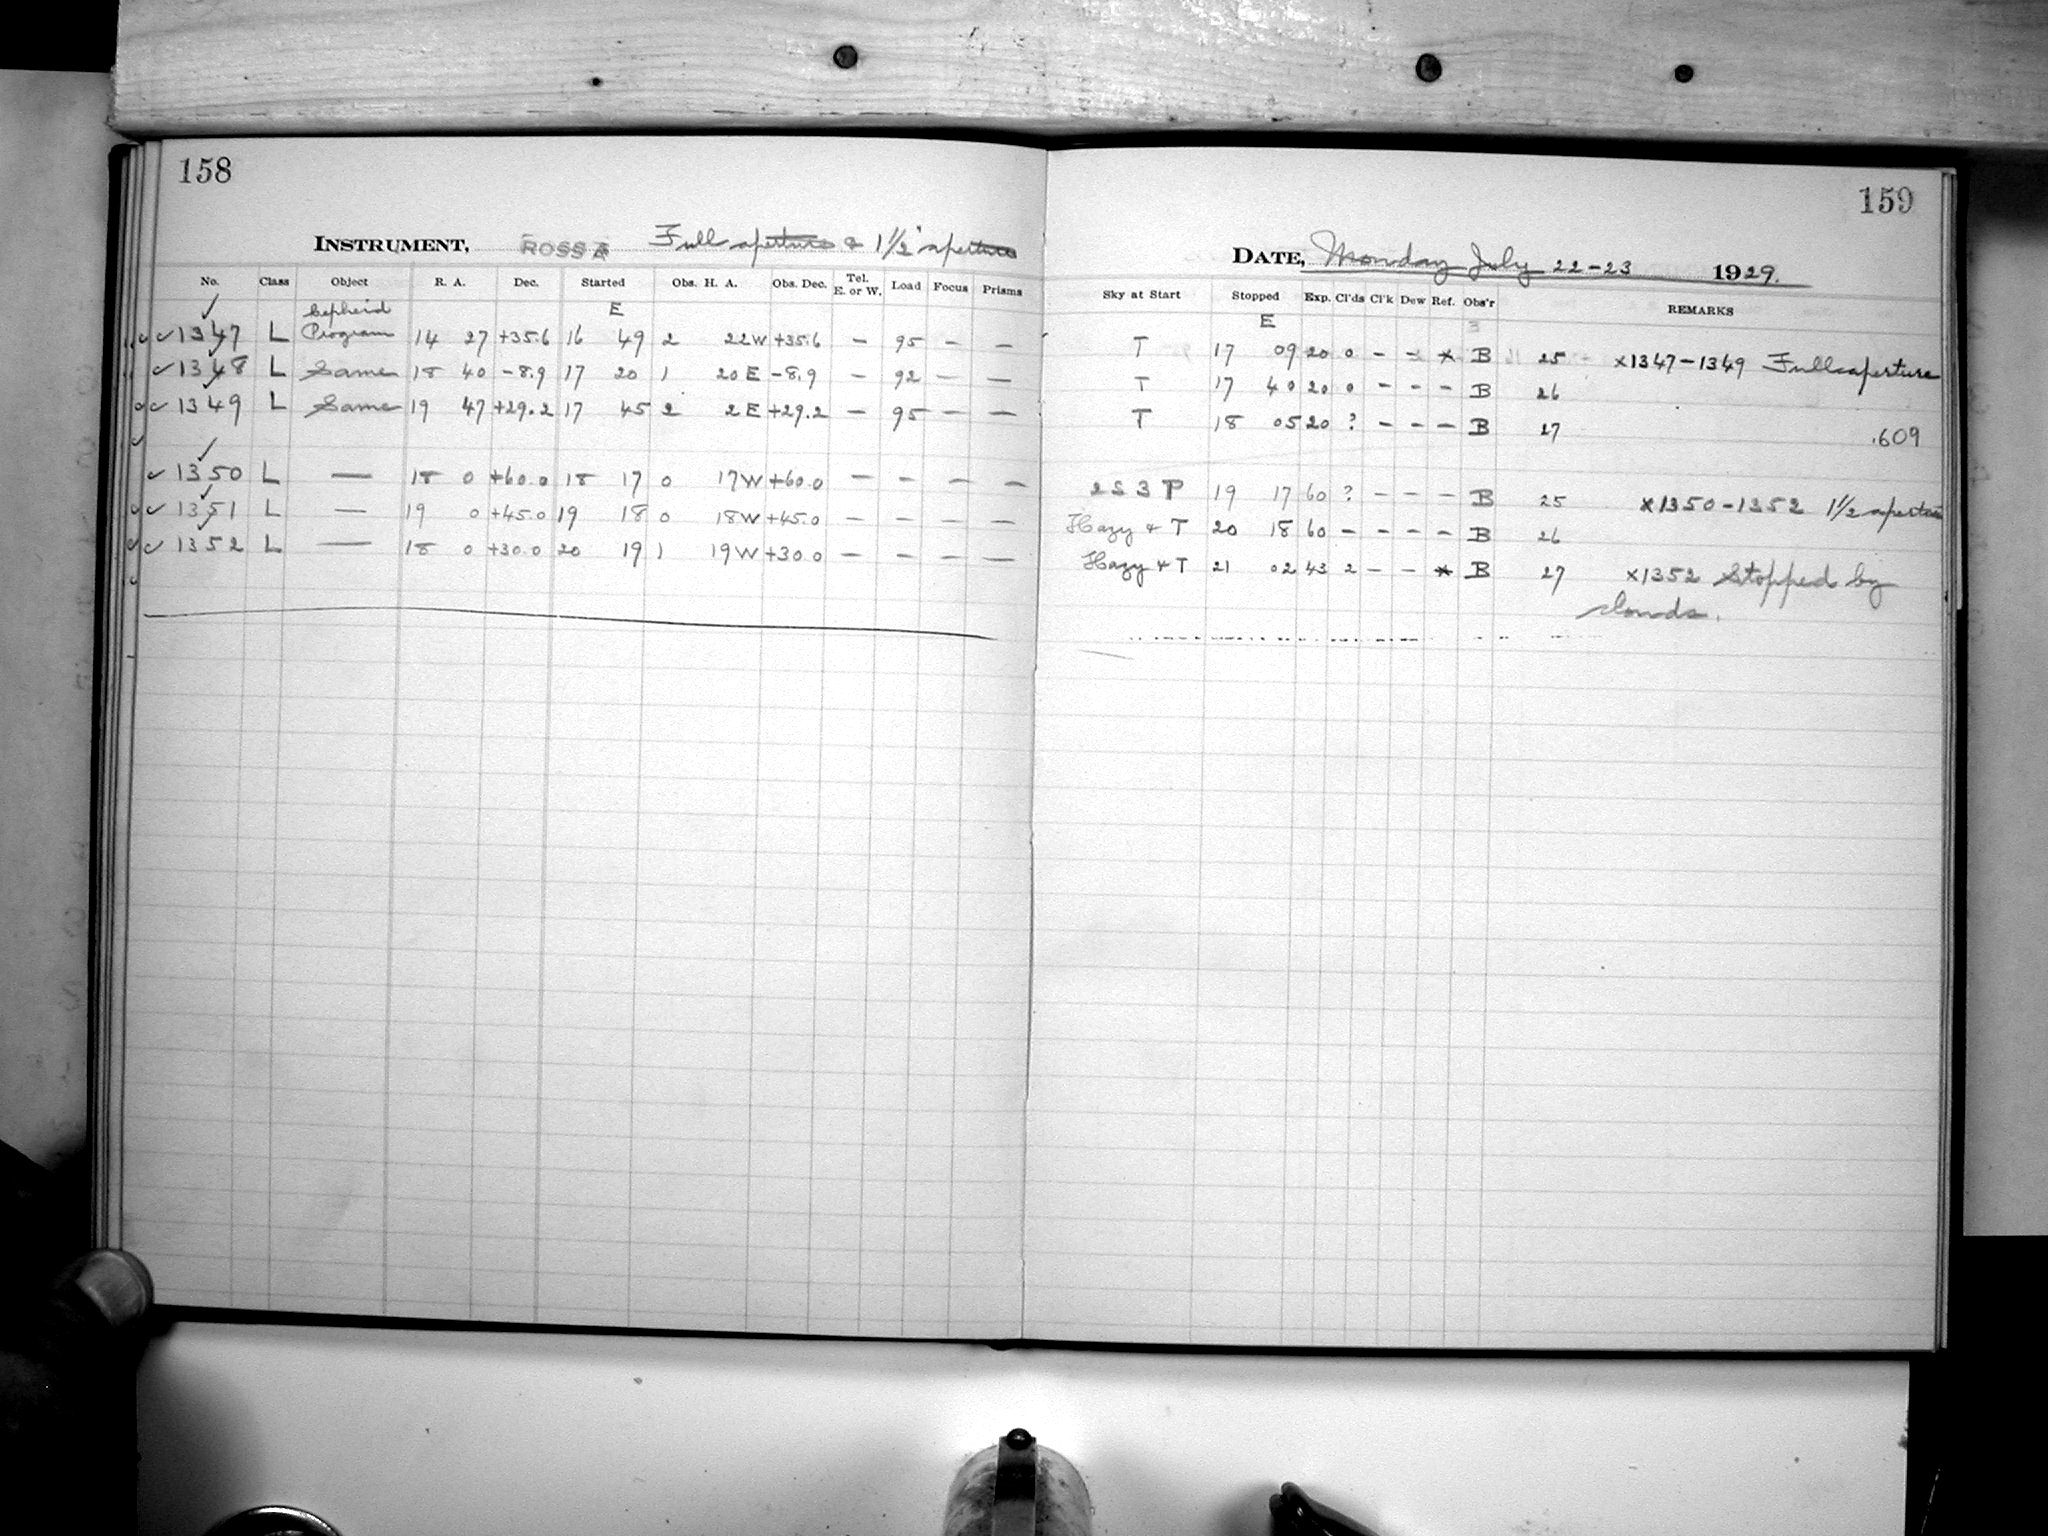 158
INSTRUMENT, ROSS A Full aperture & 1½" aperture
No. Class Object R. A. Dec. Started Obs. H. A. Obs. Dec. Tel. E. or W. Load Focus Prisms
E
1347 L Cepheid Program 14 27 +35.6 16 49 2 22 W +35.6 – 95 – –
1348 L Same 18 40 -8.9 17 20 1 20 E -8.9 – 92 – –
1349 L Same 19 47 +29.2 17 45 2 2 E +29.2 – 95 – –
1350 L — 18 0 +60.0 18 17 0 17 W +60.0 – – – –
1351 L — 19 0 +45.0 19 18 0 18 W +45.0 – – – –
1352 L — 18 0 +30.0 20 19 1 19 W +30.0 – – – –
159
DATE, Monday July 22-23 1929.
Sky at Start Stopped Exp. Cl'ds Cl'k Dew Ref. Obs'r REMARKS
E
T 17 09 20 0 – – * B 25 x1347-1349 Full aperture
T 17 40 20 0 – – – B 26
T 18 05 20 ? – – – B 27 .609
2 S 3 P 19 17 60 ? – – – B 25 x1350-1352 1½ aperture
Hazy & T 20 18 60 – – – – B 26
Hazy & T 21 02 43 2 – – * B 27 x1352 Stopped by
clouds.